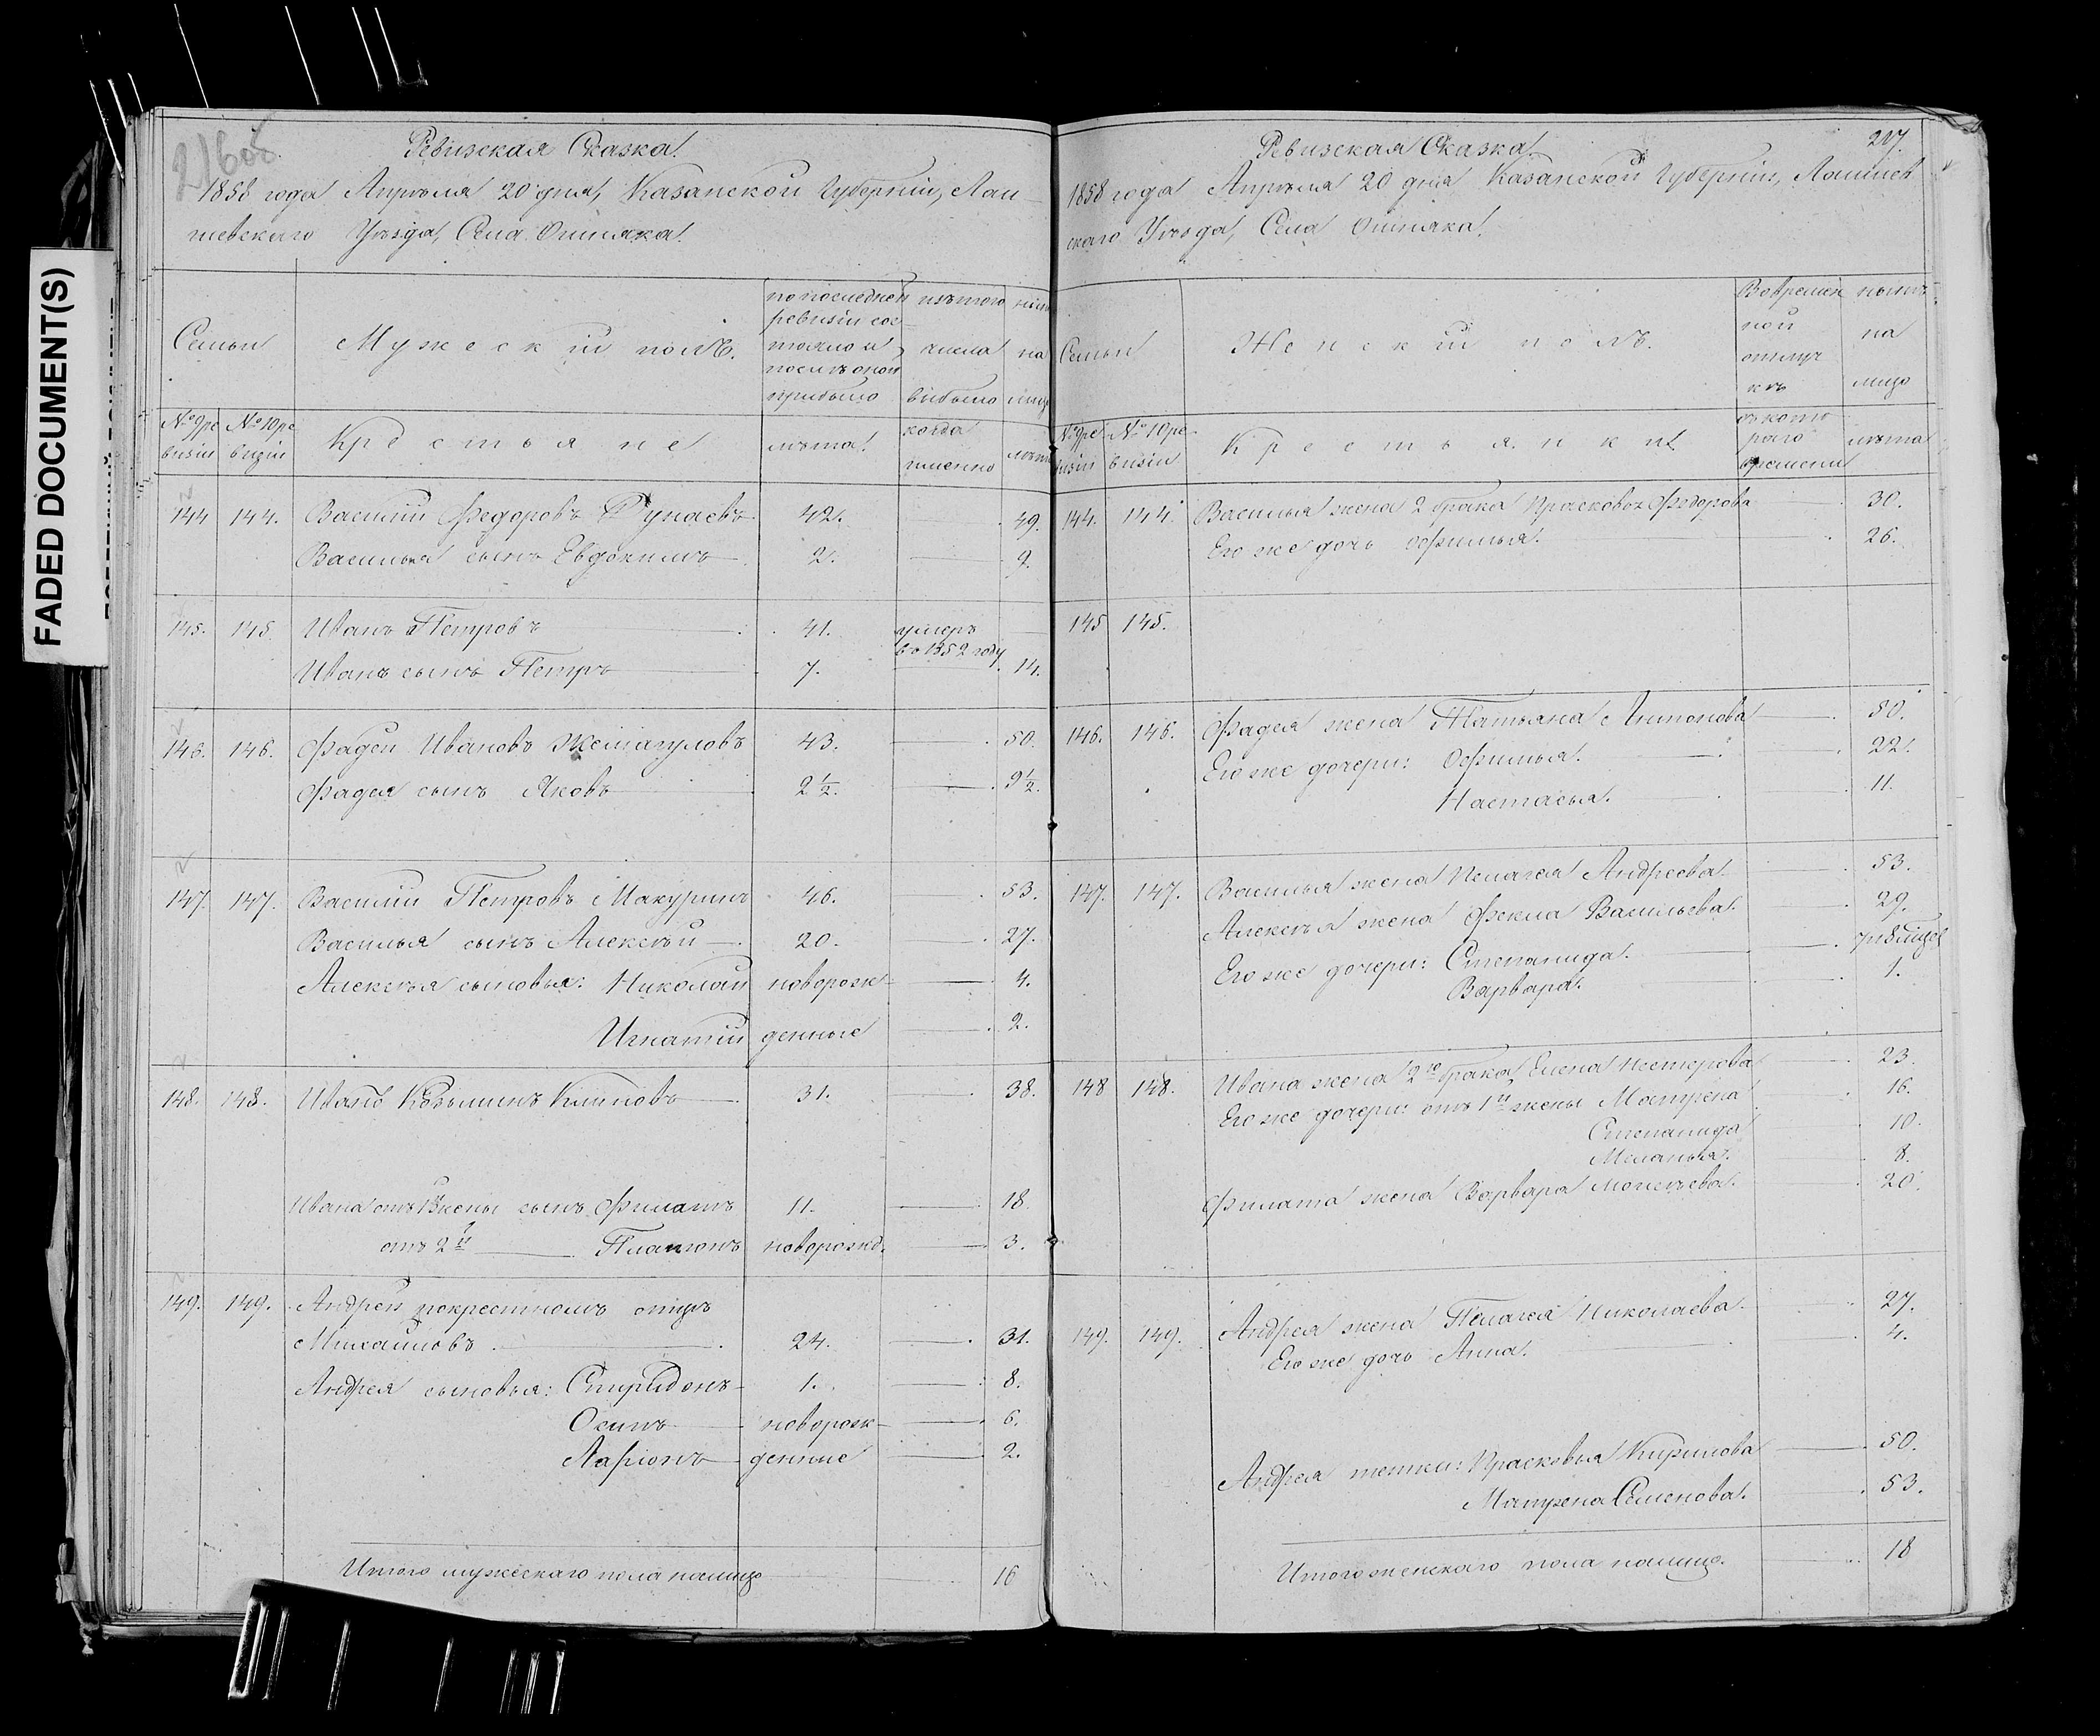 FADED DOCUMENT(S)
216 об.
Ревизская Сказка.
1858 года Апрѣля 20 дня, Казанской Губерніи, Лаи-
шевскаго Уѣзда, Села Ошняка.
Семьи
Мужескій полъ.
по последней
ревизіи сос-
тояло и
послѣ оной
прибыло
изъ того
числа
выбыло
на
лицо
№ 9 ре
визіи
№ 10 ре
визіи
Крестьяне
лѣта.
когда
именно
лѣта
144 144. Василій Федоровъ 42. 49.
Василья сынъ Евдокимъ 2. 9.
145. 145. Иванъ Петровъ 41. умеръ
въ 1852 году
Ивана сынъ Петръ 7. 14.
146. 146. Фадей Ивановъ 43. 50.
Фадея сынъ Яковъ 2 1/2. 9 1/2.
147. 147. Василій Петровъ Макуринъ 46. 53.
Василья сынъ Алексѣй 20. 27.
Алексѣя сыновья: Николай новорож- 4.
Игнатій денные 2.
148. 148. Иванъ Козьминъ Климовъ 31. 38.
Ивана отъ 1й жены сынъ Филатъ 11. 18.
отъ 2й Платонъ новорожд. 3.
149. 149. Андрей покрестномъ отцѣ
Михайловъ. 24. 31.
Андрея сыновья: Спиридонъ 1. 8.
Осипъ новорож- 6.
Ларіонъ денные 2.
Итого мужескаго пола налицо 16
217.
Ревизская Сказка.
1858 года Апрѣля 20 дня Казанской Губерніи, Лаишев
скаго Уѣзда, Села Ошняка.
Семьи
Женскій полъ.
Во времен
ной
отлуч
кѣ
нынѣ
на
лицо
№ 9 ре
визіи
№ 10 ре
визіи
Крестьянки
съ кото
раго
времени
лѣта
144. 144. Василья жена 2 брака Прасковья Федорова 30.
Его же дочь Офимья. 26.
145 145.
146. 146. Фадея жена Татьяна Антонова 50.
Его же дочери: Офимья. 22.
Настасья. 11.
147. 147. Василья жена Пелагея Андреева. 53.
Алексѣя жена Фекла Васильева. 29.
Его же дочери: Степанида.
Варвара. 1.
148 148. Ивана жена 2го брака Елена Нестерова 23.
Его же дочери: отъ 1й жены Матрена 16.
Степанида 10.
Меланья. 8.
Филата жена Варвара Моисѣева. 20.
149. 149. Андрея жена Пелагея Николаева. 27.
Его же дочь Анна. 4.
Андрея тетки: Прасковья Кирилова 50.
Матрена Семенова. 53.
Итого женскаго пола налицо. 18